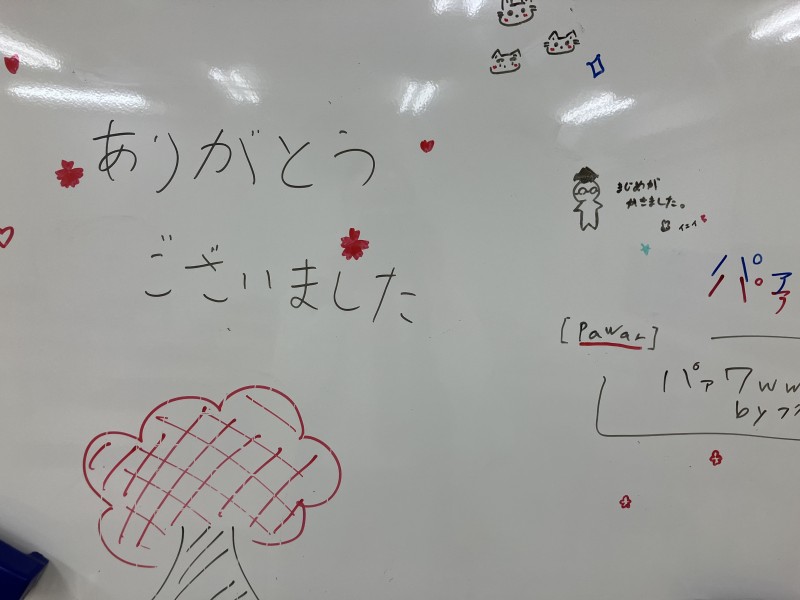 ありがとう
ございました
まじめが
かきました。
イェイ
パァ
[Pawar]
パァワww
by